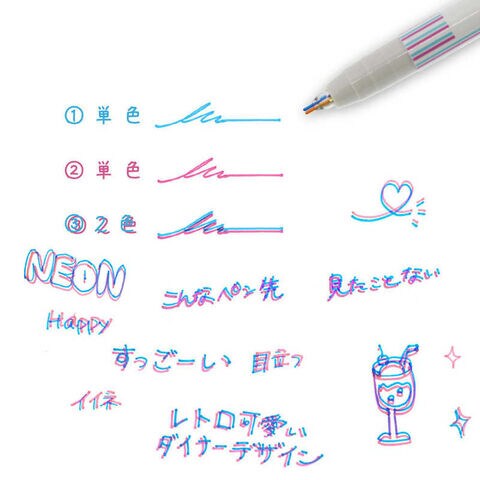 ① 単色
② 単色
③ 2色
NEON
こんなペン先
見たことない
Happy
すっごーい
目立つ
イイネ
レトロ可愛い
ダイナーデザイン